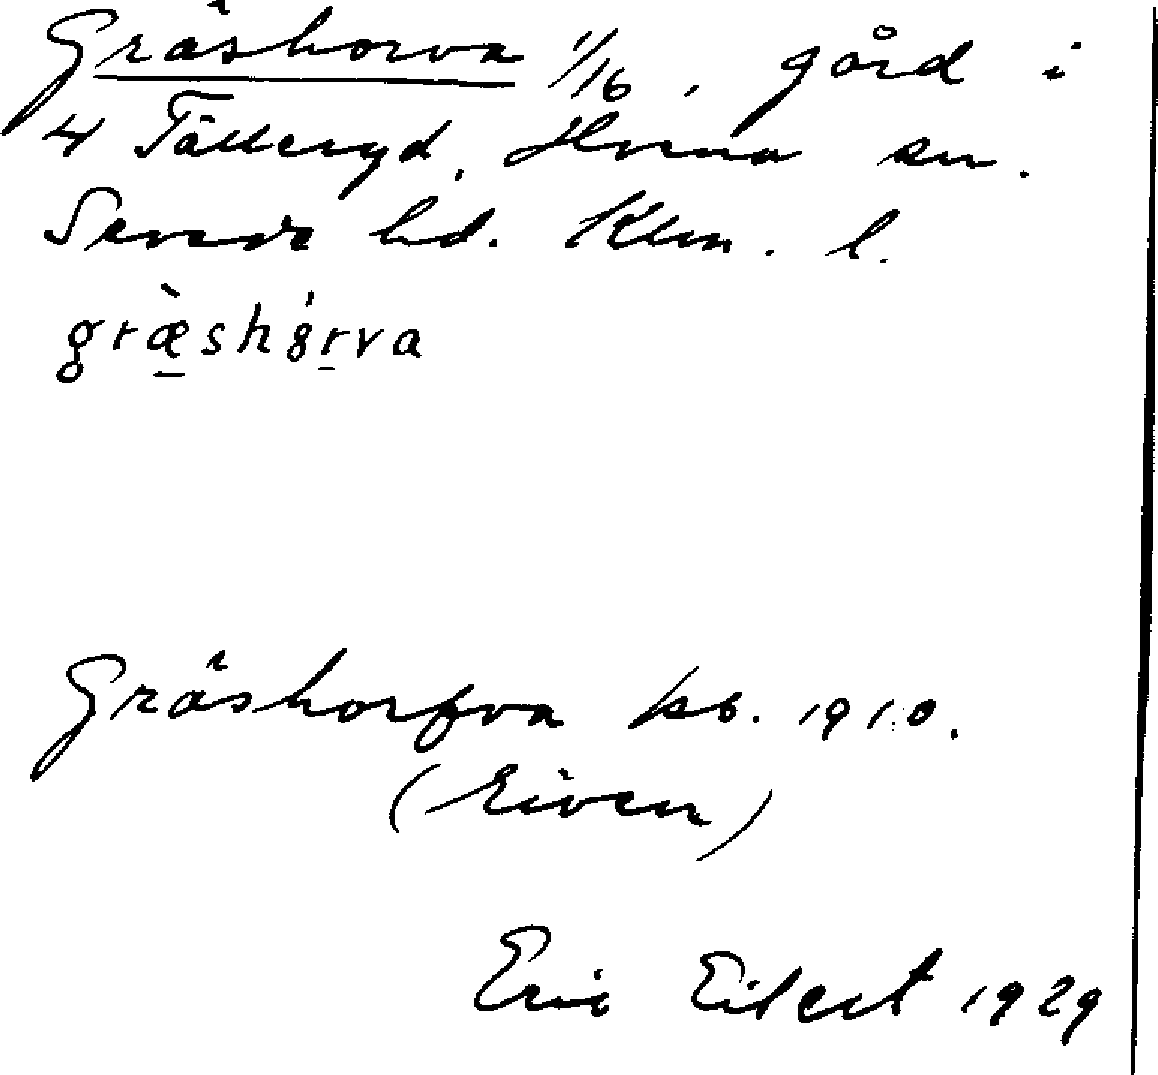 Gräshorva 1/16, gård i
4 Tälleryd, Horna sn.
Sevede hd. Klm. l.
græ̀shȯrva
Gräshorfva kb. 1910.
(Eiven)
Eric Eilert 1929